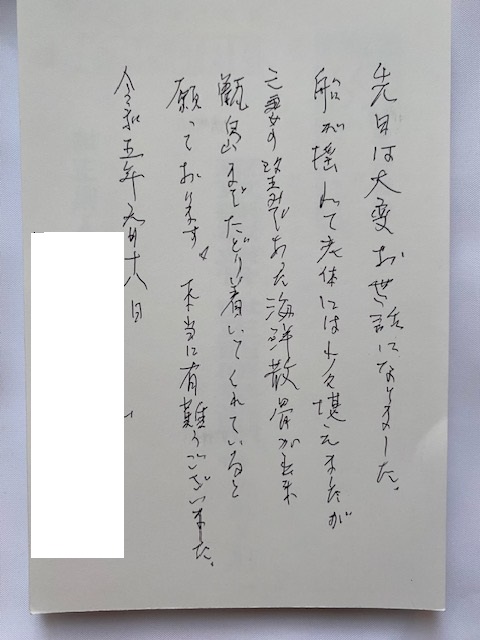 先日は大変お世話になりました。
船が揺れて老体には少々堪えましたが
亡妻の望みであった海鮮散骨が出来
甑島までたどり着いてくれていると
願っております。本当に有難うございました。
令和五年 六月十八日